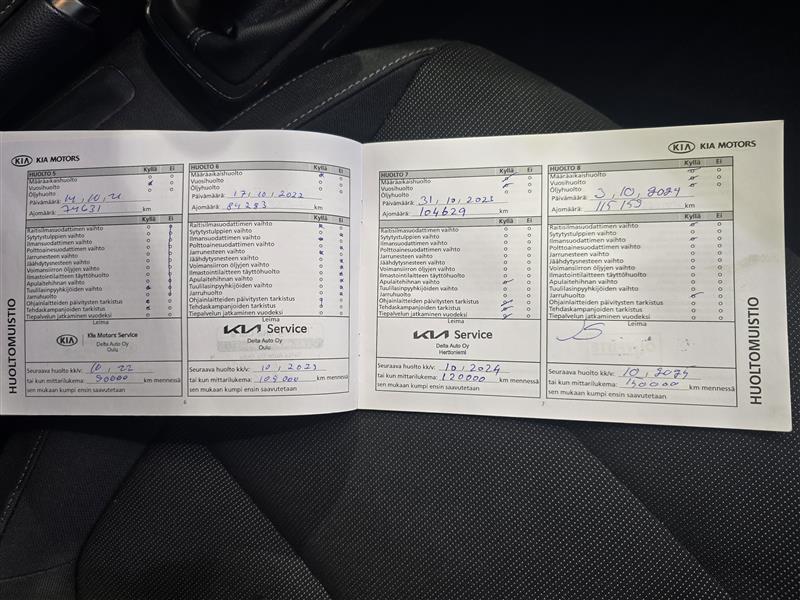 KIA KIA MOTORS
HUOLTO 5 Kyllä Ei
Määräaikaishuolto
Vuosihuolto
Öljyhuolto
Päivämäärä:
Ajomäärä: 74631 km
Kyllä Ei
Raitisilmasuodattimen vaihto
Sytytystulppien vaihto
Ilmansuodattimen vaihto
Polttoainesuodattimen vaihto
Jarrunesteen vaihto
Jäähdytysnesteen vaihto
Voimansiirron öljyjen vaihto
Ilmastointilaitteen täyttöhuolto
Apulaitehihnan vaihto
Tuulilasinpyyhkijöiden vaihto
Jarruhuolto
Ohjainlaitteiden päivitysten tarkistus
Tehdaskampanjoiden tarkistus
Tiepalvelun jatkaminen vuodeksi
Leima
KIA Kia Motors Service
Delta Auto Oy
Oulu
Seuraava huolto kk/v: 10, 22
tai kun mittarilukema: 90000 km mennessä
sen mukaan kumpi ensin saavutetaan
HUOLTO 6 Kyllä Ei
Määräaikaishuolto
Vuosihuolto
Öljyhuolto
Päivämäärä: 17, 10, 2022
Ajomäärä: 84283 km
Kyllä Ei
Raitisilmasuodattimen vaihto
Sytytystulppien vaihto
Ilmansuodattimen vaihto
Polttoainesuodattimen vaihto
Jarrunesteen vaihto
Jäähdytysnesteen vaihto
Voimansiirron öljyjen vaihto
Ilmastointilaitteen täyttöhuolto
Apulaitehihnan vaihto
Tuulilasinpyyhkijöiden vaihto
Jarruhuolto
Ohjainlaitteiden päivitysten tarkistus
Tehdaskampanjoiden tarkistus
Tiepalvelun jatkaminen vuodeksi
Leima
KIA Service
Delta Auto Oy
Oulu
Seuraava huolto kk/v: 10, 2023
tai kun mittarilukema: km mennessä
sen mukaan kumpi ensin saavutetaan
HUOLTOMUISTIO
6
KIA KIA MOTORS
HUOLTO 7 Kyllä Ei
Määräaikaishuolto
Vuosihuolto
Öljyhuolto
Päivämäärä: 31, 10, 2023
Ajomäärä: 104629 km
Kyllä Ei
Raitisilmasuodattimen vaihto
Sytytystulppien vaihto
Ilmansuodattimen vaihto
Polttoainesuodattimen vaihto
Jarrunesteen vaihto
Jäähdytysnesteen vaihto
Voimansiirron öljyjen vaihto
Ilmastointilaitteen täyttöhuolto
Apulaitehihnan vaihto
Tuulilasinpyyhkijöiden vaihto
Jarruhuolto
Ohjainlaitteiden päivitysten tarkistus
Tehdaskampanjoiden tarkistus
Tiepalvelun jatkaminen vuodeksi
Leima
KIA Service
Delta Auto Oy
Herttoniemi
Seuraava huolto kk/v: 10, 2024
tai kun mittarilukema: 120000 km mennessä
sen mukaan kumpi ensin saavutetaan
HUOLTO 8 Kyllä Ei
Määräaikaishuolto
Vuosihuolto
Öljyhuolto
Päivämäärä: 3, 10, 2024
Ajomäärä: 115153 km
Kyllä Ei
Raitisilmasuodattimen vaihto
Sytytystulppien vaihto
Ilmansuodattimen vaihto
Polttoainesuodattimen vaihto
Jarrunesteen vaihto
Jäähdytysnesteen vaihto
Voimansiirron öljyjen vaihto
Ilmastointilaitteen täyttöhuolto
Apulaitehihnan vaihto
Tuulilasinpyyhkijöiden vaihto
Jarruhuolto
Ohjainlaitteiden päivitysten tarkistus
Tehdaskampanjoiden tarkistus
Tiepalvelun jatkaminen vuodeksi
Leima
Seuraava huolto kk/v: 10, 2025
tai kun mittarilukema: km mennessä
sen mukaan kumpi ensin saavutetaan
HUOLTOMUISTIO
7